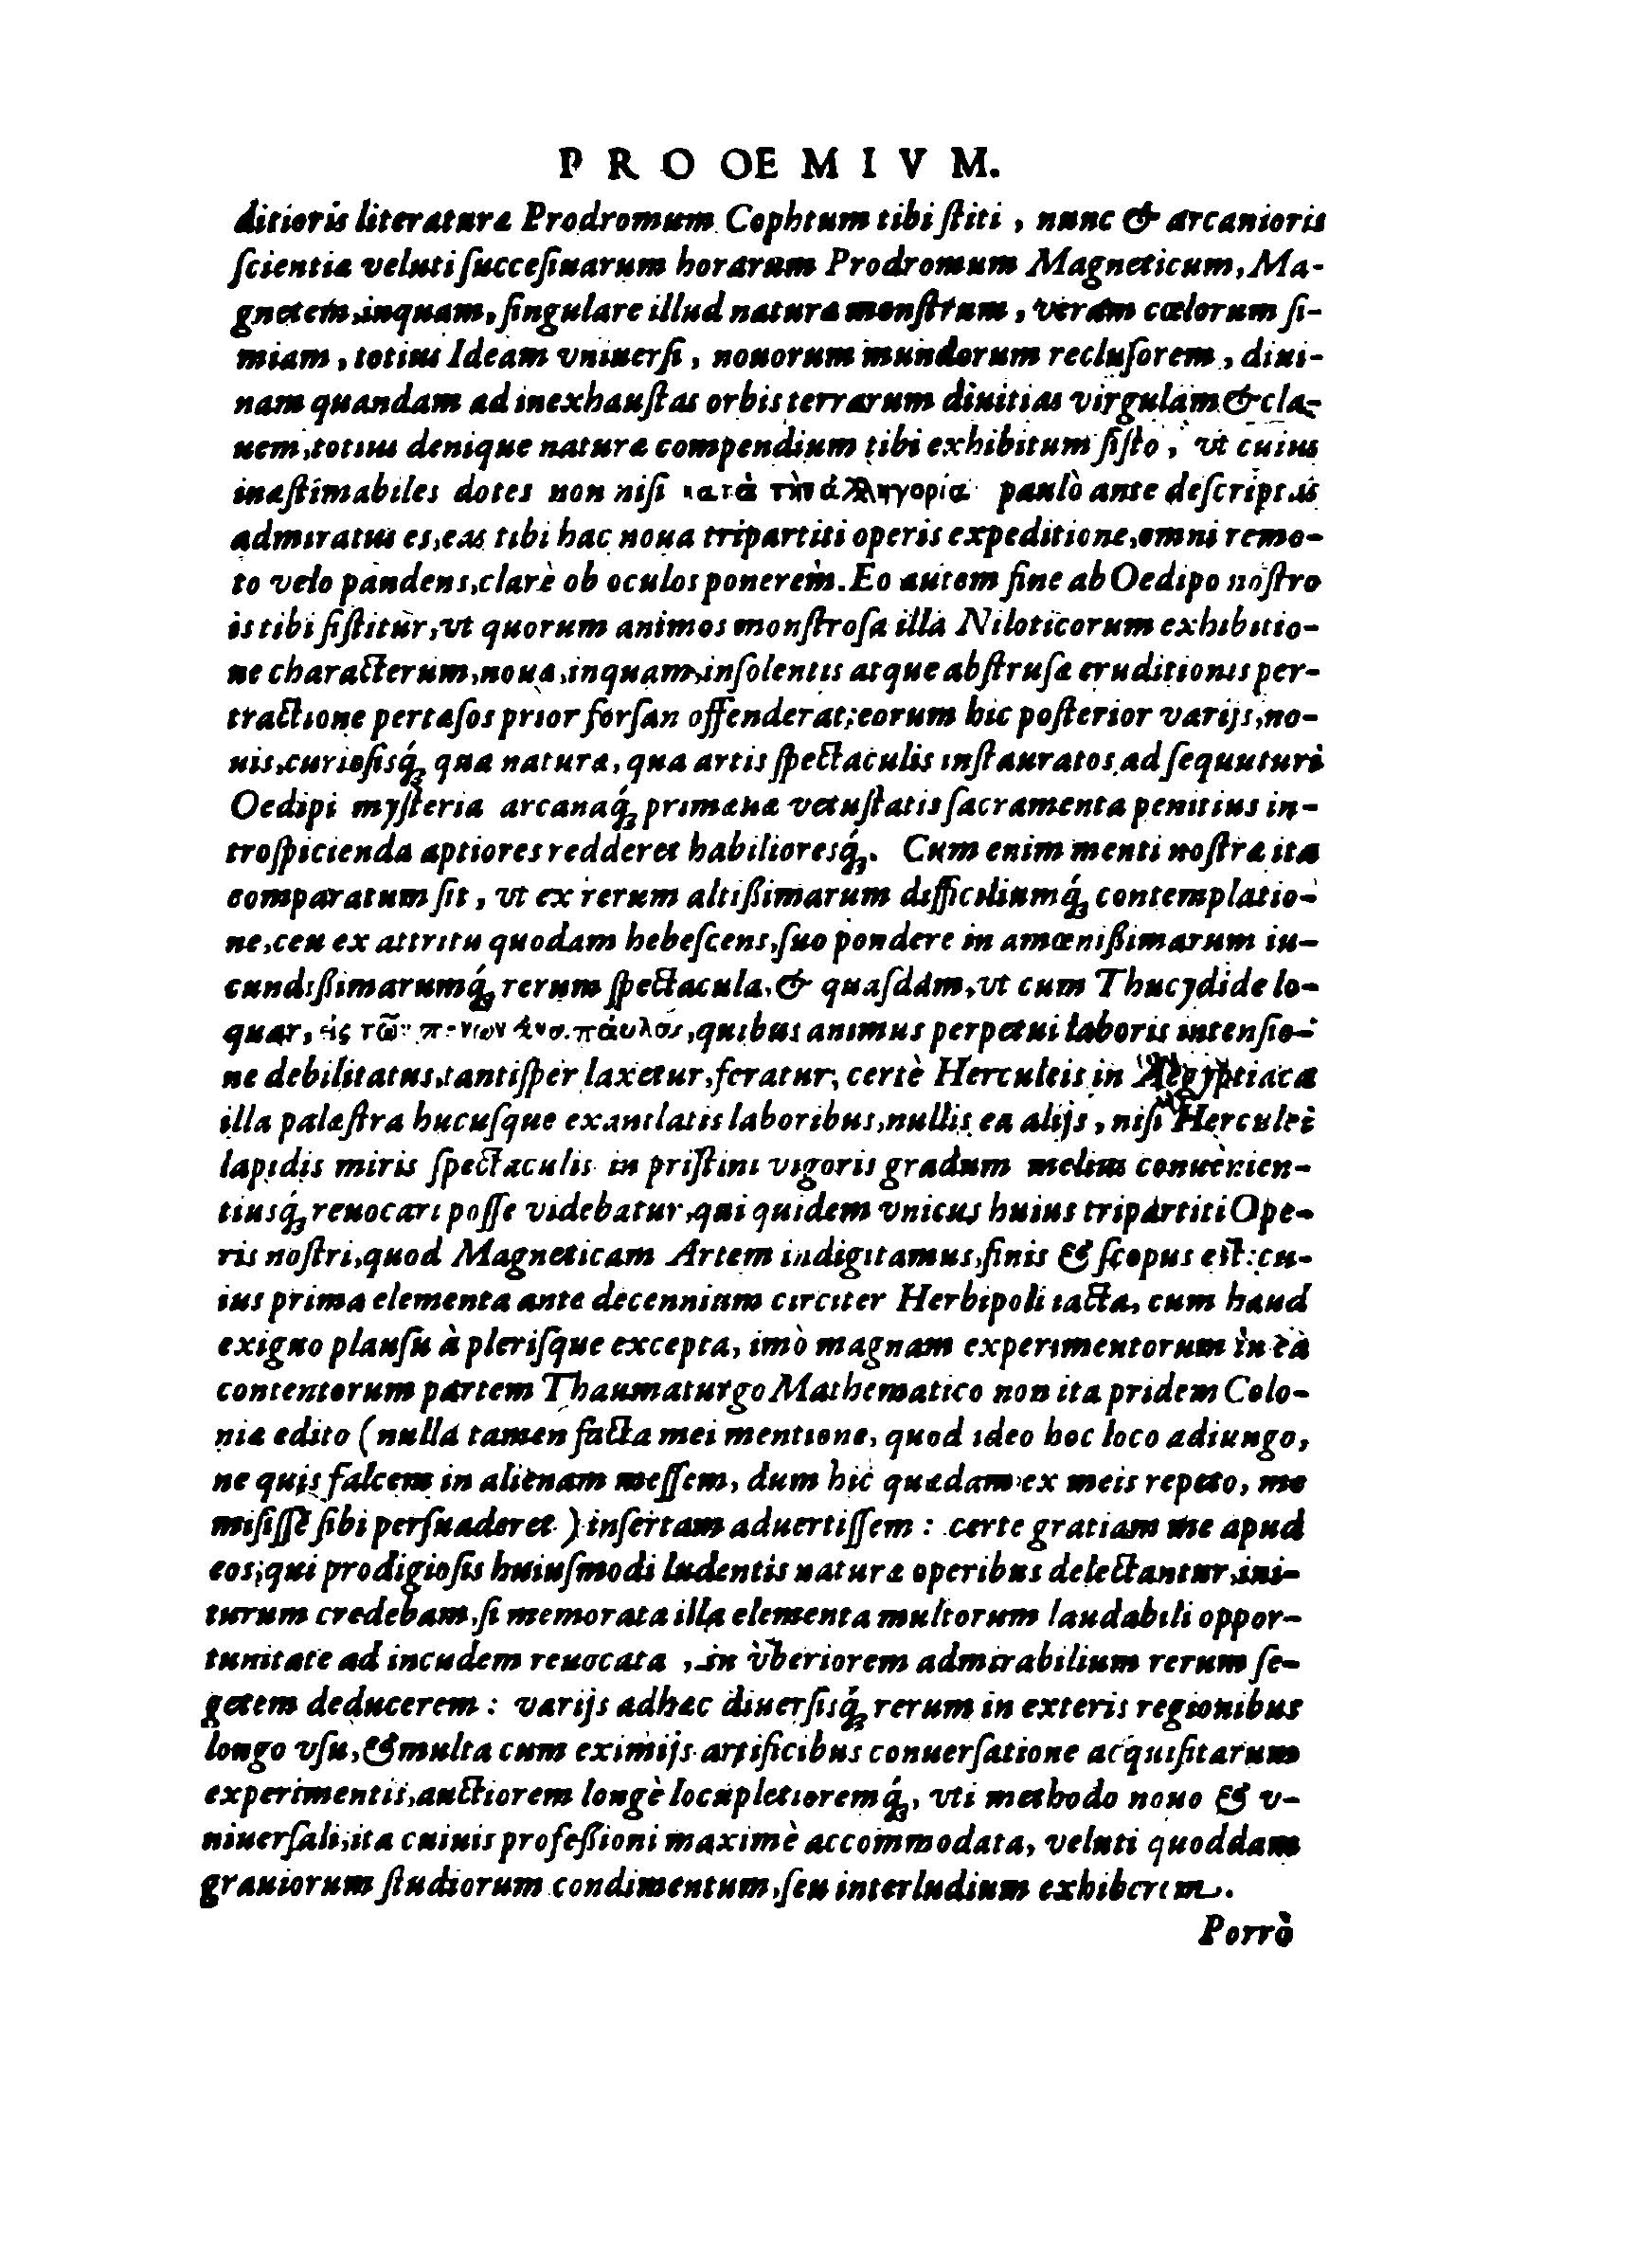 PROOEMIVM.
ditioris literaturæ Prodromum Cophtum tibi ſtiti, nunc & arcanioris
ſcientiæ veluti ſucceſiuarum horarum Prodromum Magneticum, Ma-
gnetem, inquam, ſingulare illud naturæ monſtrum, veram cœlorum ſi-
miam, totius Ideam vniuerſi, nouorum mundorum recluſorem, diui-
nam quandam ad inexhauſtas orbis terrarum diuitias virgulam & cla-
uem, totius denique naturæ compendium tibi exhibitum ſiſto, vt cuius
inæſtimabiles dotes non niſi κατὰ τὴν ἀλληγορία paulò ante deſcriptas
admiratus es, eas tibi hac noua tripartiti operis expeditione, omni remo-
to velo pandens, clarè ob oculos ponerem. Eo autem fine ab Oedipo noſtro
is tibi ſiſtitur, vt quorum animos monſtroſa illa Niloticorum exhibitio-
ne characterum, noua, inquam, inſolentis atque abſtruſæ eruditionis per-
tractione pertæſos prior forſan offenderat; eorum hic poſterior varijs, no-
uis, curioſisq́; qua naturæ, qua artis ſpectaculis inſtauratos ad ſequuturi
Oedipi myſteria arcanaq́; primæuæ vetuſtatis ſacramenta penitius in-
troſpicienda aptiores redderet habilioresq́;. Cum enim menti noſtræ ita
comparatum ſit, vt ex rerum altißimarum difficiliumq́; contemplatio-
ne, ceu ex attritu quodam hebeſcens, ſuo pondere in amœnißimarum iu-
cundißimarumq́; rerum ſpectacula, & quaſdam, vt cum Thucydide lo-
quar, quibus animus perpetui laboris intenſio-
ne debilitatus, tantiſper laxetur, feratur; certè Herculeis in Aegyptiaca
illa palæſtra hucuſque exantlatis laboribus, nullis ea alijs, niſi Herculei
lapidis miris ſpectaculis in priſtini vigoris gradum melius conuenien-
tiusq́; reuocari poſſe videbatur, qui quidem vnicus huius tripartiti Ope-
ris noſtri, quod Magneticam Artem indigitamus, finis & ſcopus eſt: cu-
ius prima elementa ante decennium circiter Herbipoli iacta, cum haud
exiguo plauſu à pleriſque excepta, imò magnam experimentorum in eà
contentorum partem Thaumaturgo Mathematico non ita pridem Colo-
niæ edito (nulla tamen facta mei mentione, quod ideo hoc loco adiungo,
ne quis falcem in alienam meſſem, dum hic quædam ex meis repeto, me
miſiſſe ſibi perſuaderet) inſertam aduertiſſem: certe gratiam me apud
eos, qui prodigioſis huiuſmodi ludentis naturæ operibus delectantur, ini-
turum credebam, ſi memorata illa elementa multorum laudabili oppor-
tunitate ad incudem reuocata, in vberiorem admirabilium rerum ſe-
getem deducerem: varijs adhæc diuerſisq́; rerum in exteris regionibus
longo vſu, & multa cum eximijs artificibus conuerſatione acquiſitarum
experimentis, auctiorem longè locupletioremq́;, vti methodo nouo & v-
niuerſali, ita cuiuis profeßioni maximè accommodata, veluti quoddam
grauiorum ſtudiorum condimentum, ſeu interludium exhiberem.
Porrò